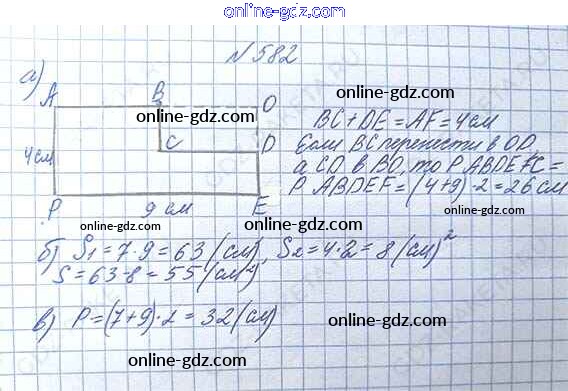 online-gdz.com
№ 582
а)
A B O
online-gdz.com
C D
4см
P 9 см E
BC + DE = AF = 4 см
Если BC перенести в OD,
а CD в BO, то P ABDEFC =
P ABDEF = (4+9)·2 = 26 см
online-gdz.com
online-gdz.com
online-gdz.com
online-gdz.com
б) S1 = 7·9 = 63 (см), S2 = 4·2 = 8 (см)²
S = 63-8 = 55 (см²)
online-gdz.com
в) P = (7+9)·2 = 32 (см)
online-gdz.com
online-gdz.com